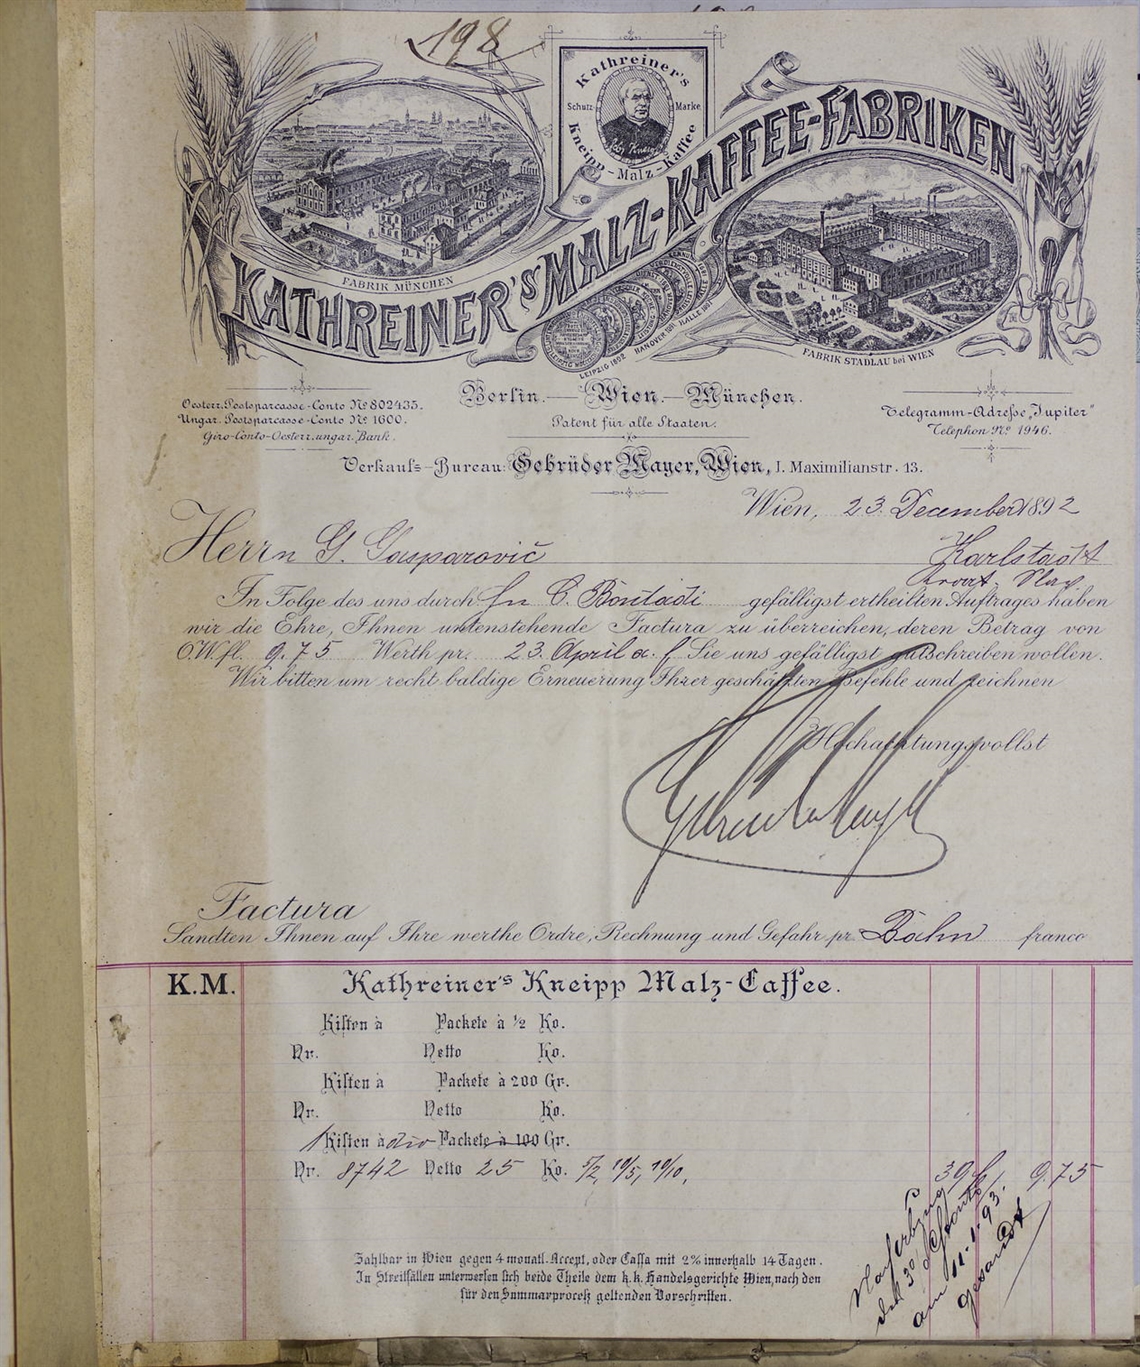 198
Kathreiner's
Schutz Marke
Kneipp-Malz-Kaffee
KATHREINER'S MALZ-KAFFEE-FABRIKEN
FABRIK MÜNCHEN
LEIPZIG 1892 HANNOVER 1891 HALLE 1891
FABRIK STADLAU bei WIEN
Berlin.—Wien.—München.
Patent für alle Staaten.
Oesterr. Postsparcasse-Conto No 802435.
Ungar. Postsparcasse-Conto No 1600.
Giro-Conto-Oesterr. ungar. Bank.
Telegramm-Adresse „Jupiter"
Telephon No 1946.
Verkaufs-Bureau: Gebrüder Mayer, Wien, I. Maximilianstr. 13.
Wien, 23. December 1892
Herrn G. Gasparovič Karlstadt
Kroat. Slav.
In Folge des uns durch Hn C. Bontadi gefälligst ertheilten Auftrages haben
wir die Ehre, Ihnen untenstehende Factura zu überreichen, deren Betrag von
Ö.W.fl. 9.75 Werth pr. 23. April a. f. Sie uns gefälligst gutschreiben wollen.
Wir bitten um recht baldige Erneuerung Ihrer geschätzten Befehle und zeichnen
Hochachtungsvollst
Gebrüder Mayer
Factura
Sandten Ihnen auf Ihre werthe Ordre, Rechnung und Gefahr pr. Bahn franco
K.M. Kathreiner's Kneipp Malz-Caffee.
Kisten à Packete à ½ Ko.
Nr. Netto Ko.
Kisten à Packete à 200 Gr.
Nr. Netto Ko.
1 Kisten à div Packete à 100 Gr.
Nr. 8742 Netto 25 Ko. 5/2, 10/5, 10/10, 39 f 9.75
3% Sconto
am 11.1.93.
gesandt
Zahlbar in Wien gegen 4 monatl. Accept, oder Cassa mit 2% innerhalb 14 Tagen.
In Streitfällen unterwerfen sich beide Theile dem k.k. Handelsgerichte Wien, nach den
für den Summarproceß geltenden Vorschriften.